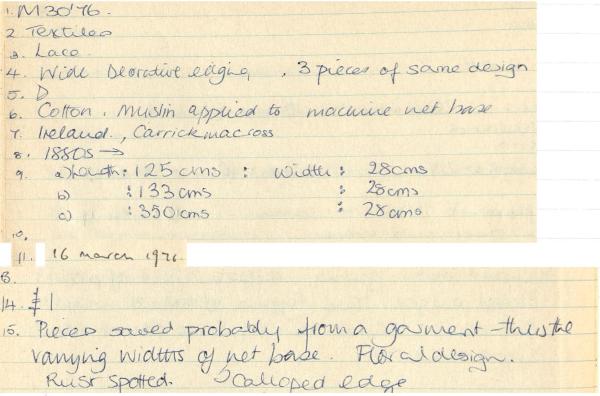 1. M30'76
2 Textiles
3. Lace.
4. Wide Decorative edging, 3 pieces of same design
5. D
6. Cotton. Muslin applied to machine net base
7. Ireland, Carrickmacross
8. 1880s →
9. a) Length: 125 cms : Width: 28cms
b) : 133 cms : 28cms
c) : 350 cms : 28cms
10.
11. 16 March 1976
3.
14. 1
15. Pieces saved probably from a garment - thus the
varying widths of net base. Floral design.
Rust spotted. Scalloped edge